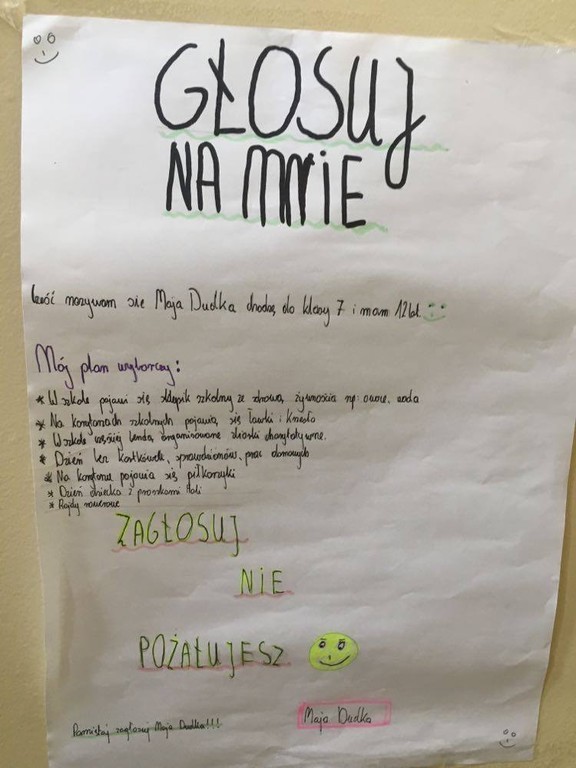 GŁOSUJ
NA MNIE
Cześć nazywam się Maja Dudka chodzę do klasy 7 i mam 12 lat.
Mój plan wyborczy:
* W szkole pojawi się sklepik szkolny ze zdrową żywnością np: owoce, woda
* Na korytarzach szkolnych pojawią się ławki i krzesła
* W szkole częściej będą organizowane zbiórki charytatywne.
* Dzień bez kartkówek, sprawdzianów, prac domowych
* Na korytarzu pojawią się piłkarzyki
* Dzień dziecka z proszkami Holi
* Rajdy rowerowe
ZAGŁOSUJ
NIE
POŻAŁUJESZ
Maja Dudka
Pamiętaj zagłosuj Maja Dudka!!!